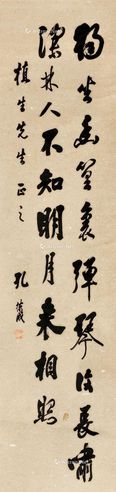 獨坐幽篁裏彈琴復長嘯
深林人不知明月來相照
植生先生正之
孔德成